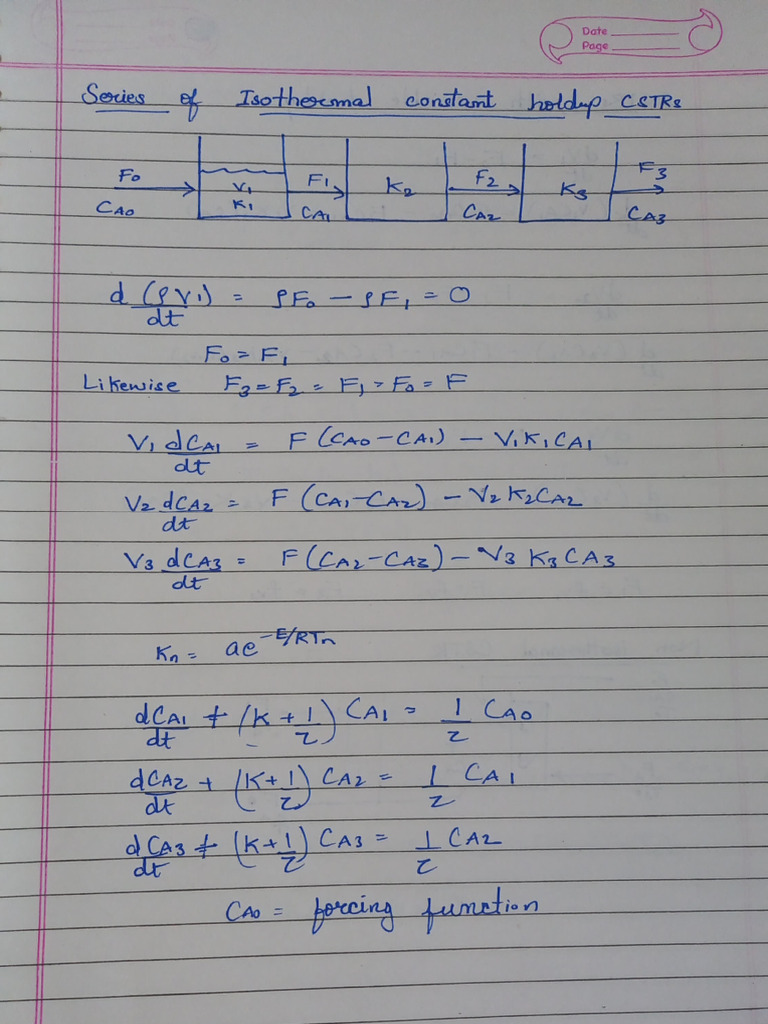 Date
Page
Series of Isothermal constant holdup CSTRs
F0 F1 F2 F3
V1
K1 K2 K3
CA0 CA1 CA2 CA3
d(ρV1)/dt = ρF0 − ρF1 = 0
F0 = F1
Likewise F3 = F2 = F1 = F0 = F
V1 dCA1/dt = F(CA0 − CA1) − V1K1CA1
V2 dCA2/dt = F(CA1 − CA2) − V2K2CA2
V3 dCA3/dt = F(CA2 − CA3) − V3K3CA3
Kn = ae^−E/RTn
dCA1/dt + (K + 1/τ) CA1 = 1/τ CA0
dCA2/dt + (K + 1/τ) CA2 = 1/τ CA1
dCA3/dt + (K + 1/τ) CA3 = 1/τ CA2
CA0 = forcing function